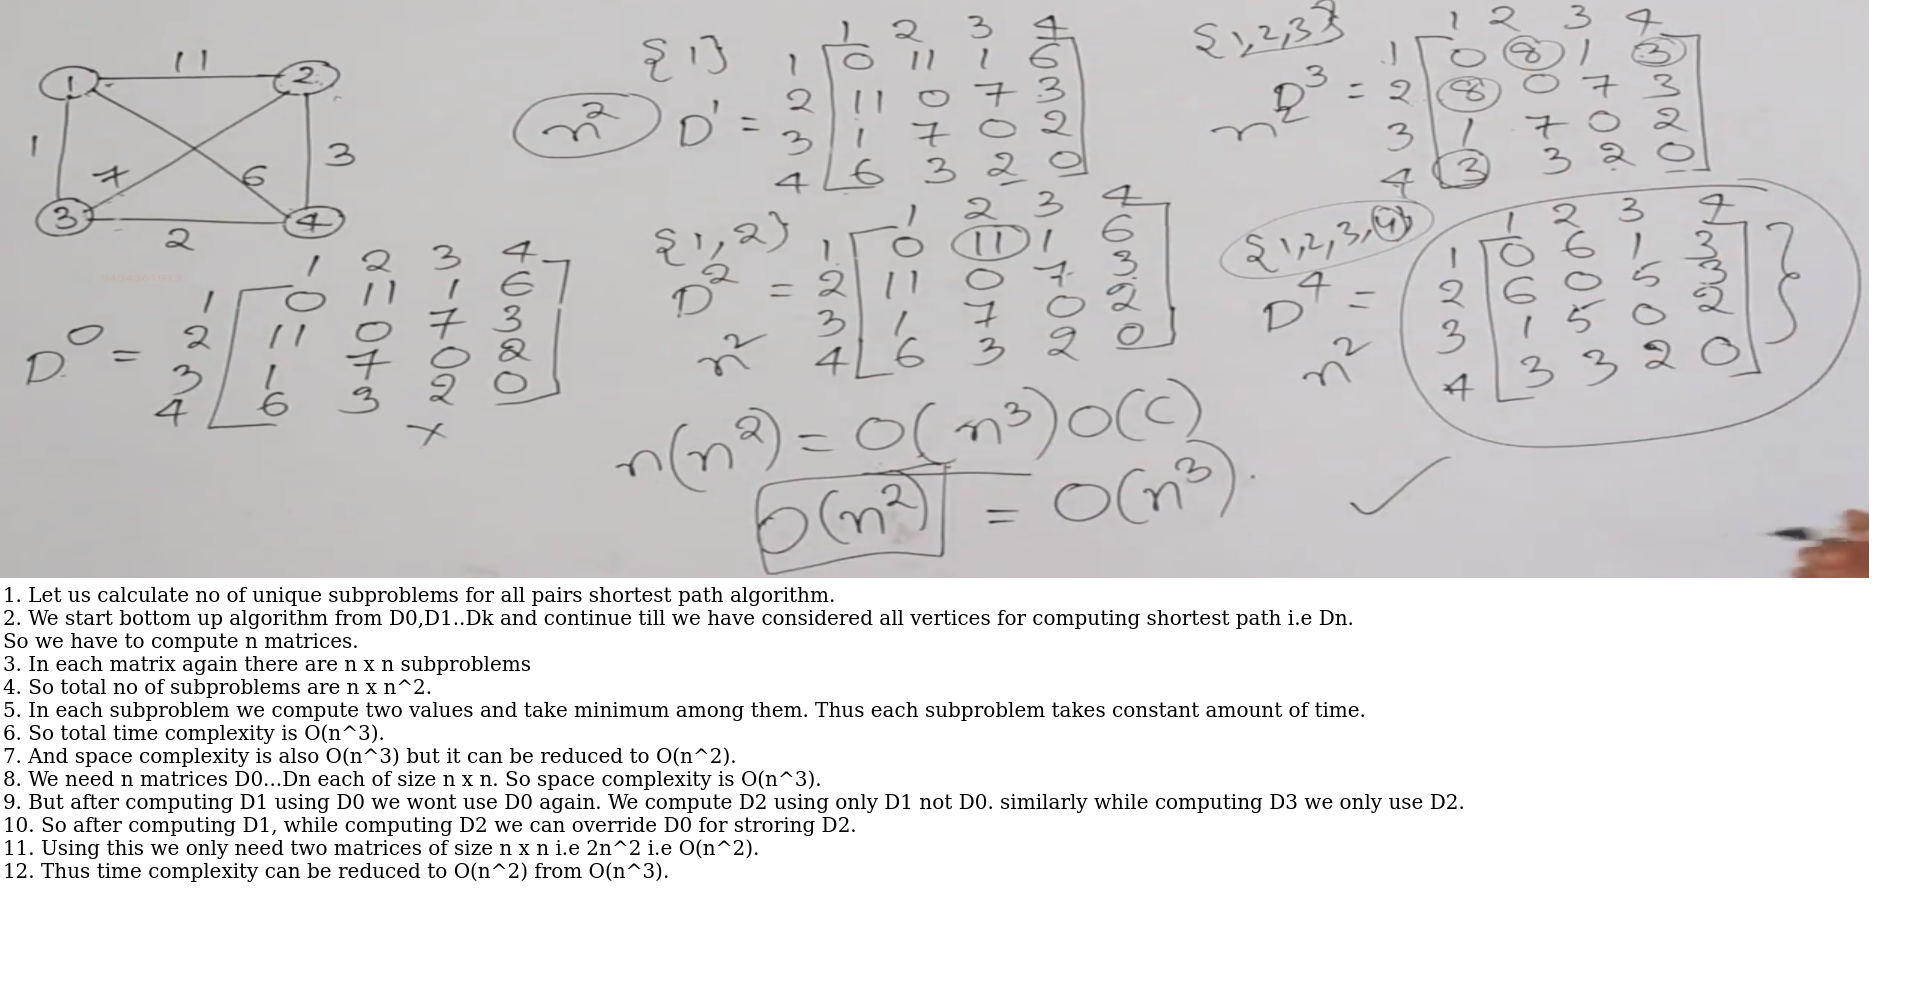 1 11 2
1 7 6 3
3 2 4
1 2 3 4
1 0 11 1 6
D0 = 2 11 0 7 3
3 1 7 0 2
4 6 3 2 0
x
{1} 1 2 3 4
1 0 11 1 6
n2 D1 = 2 11 0 7 3
3 1 7 0 2
4 6 3 2 0
{1,2} 1 2 3 4
1 0 11 1 6
D2 = 2 11 0 7 3
3 1 7 0 2
n2 4 6 3 2 0
{1,2,3} 1 2 3 4
1 0 8 1 3
D3 = 2 8 0 7 3
n2 3 1 7 0 2
4 3 3 2 0
{1,2,3,4} 1 2 3 4
1 0 6 1 3
D4 = 2 6 0 5 3
3 1 5 0 2
n2 4 3 3 2 0
n(n2) = O(n3) O(C)
O(n2) = O(n3).
1. Let us calculate no of unique subproblems for all pairs shortest path algorithm.
2. We start bottom up algorithm from D0,D1..Dk and continue till we have considered all vertices for computing shortest path i.e Dn.
So we have to compute n matrices.
3. In each matrix again there are n x n subproblems
4. So total no of subproblems are n x n^2.
5. In each subproblem we compute two values and take minimum among them. Thus each subproblem takes constant amount of time.
6. So total time complexity is O(n^3).
7. And space complexity is also O(n^3) but it can be reduced to O(n^2).
8. We need n matrices D0...Dn each of size n x n. So space complexity is O(n^3).
9. But after computing D1 using D0 we wont use D0 again. We compute D2 using only D1 not D0. similarly while computing D3 we only use D2.
10. So after computing D1, while computing D2 we can override D0 for stroring D2.
11. Using this we only need two matrices of size n x n i.e 2n^2 i.e O(n^2).
12. Thus time complexity can be reduced to O(n^2) from O(n^3).